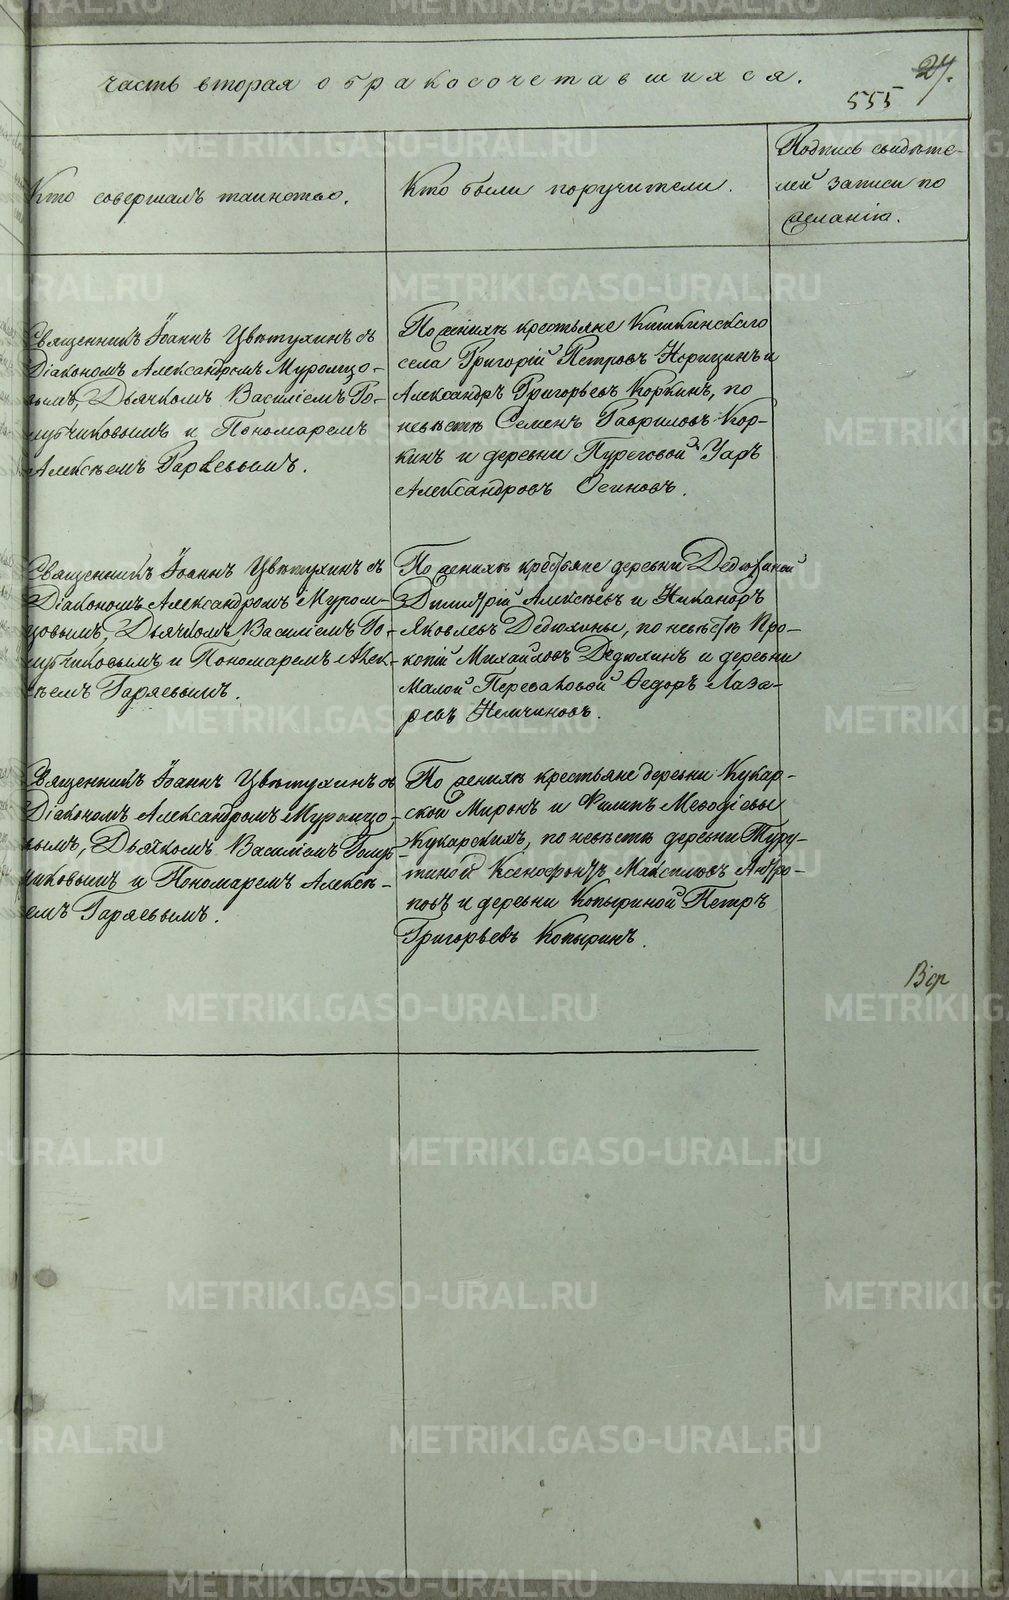 часть вторая о бракосочетавшихся.
27.
555
Кто совершалъ таинство.
Кто были поручители.
Подпись свидѣте-
лей записи по
желанію.
Священникъ Іоаннъ Цвѣтухинъ съ
Діакономъ Александромъ Муромцо-
вымъ, Дьячкомъ Василіемъ Го-
и Пономаремъ
Алексѣемъ Гаряевымъ.
По женихѣ крестьяне Кишкинскаго
села Григорій Петровъ и
Александръ Григорьевъ Коркинъ, по
невѣстѣ Семенъ Гавриловъ Кор-
кинъ и деревни Пуреговой Уаръ
Александровъ Осиновъ.
Священникъ Іоаннъ Цвѣтухинъ съ
Діакономъ Александромъ Муром-
цовымъ, Дьячкомъ Василіемъ Го-
и Пономаремъ Алек-
сѣемъ Гаряевымъ.
По женихѣ крестьяне деревни Дедюхиной
Димитрій Алексѣевъ и Никандръ
Яковлевъ Дедюхины, по невѣстѣ Про-
копій Михайловъ Дедюхинъ и деревни
Малой Переваловой Ѳедоръ Лаза-
ревъ Немчиновъ.
Священникъ Іоаннъ Цвѣтухинъ съ
Діакономъ Александромъ Муромцо-
вымъ, Дьячкомъ Василіемъ
и Пономаремъ Алексѣ-
емъ Гаряевымъ.
По женихѣ крестьяне деревни Кукар-
ской Миронъ и Филипъ Меѳодіевы
Кукарскихъ, по невѣстѣ деревни Туру-
тиной Ксенофонтъ Максимовъ Антро-
повъ и деревни Копыриной Петръ
Григорьевъ Копыринъ.
METRIKI.GASO-URAL.RU